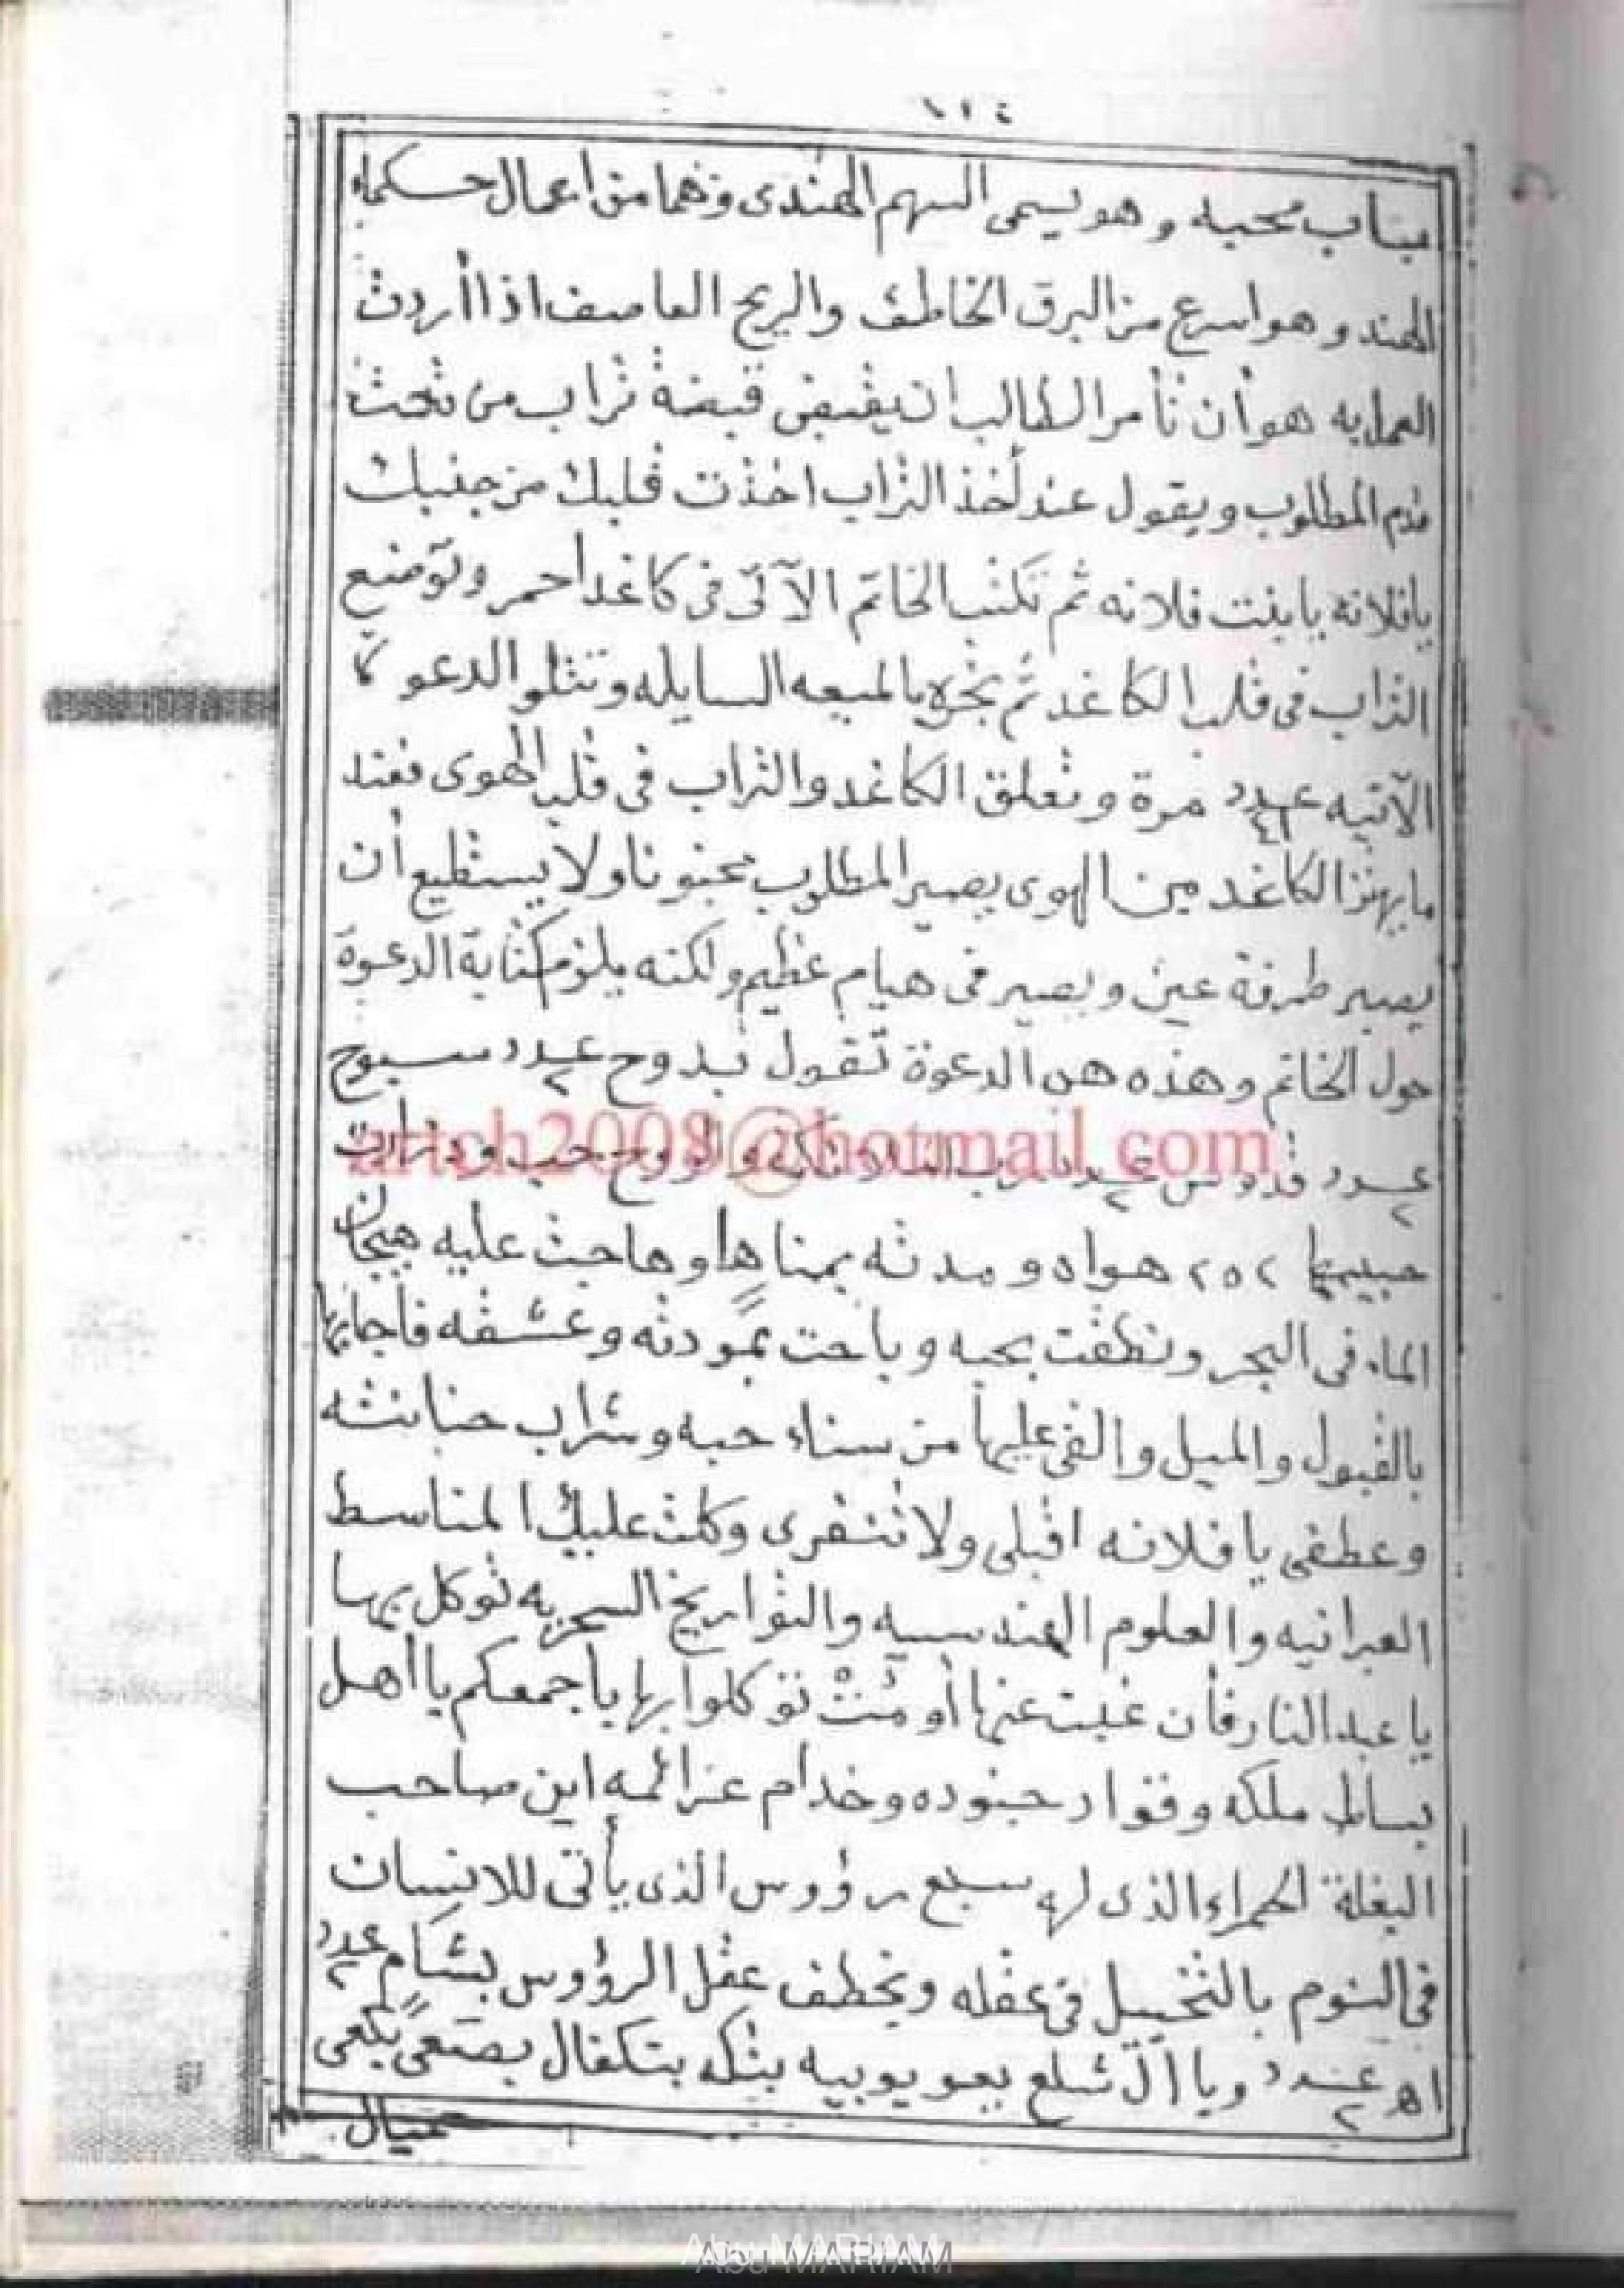 ١١٤
باب محبه وهو يسمى السهم الهندى وهما من أعمال حكماء
الهند وهو اسرع من البرق الخاطف والريح العاصف اذا أردت
العمل به هو أن تأمر الطالب ان يقبض قبضة تراب من تحت
قدم المطلوب ويقول عند أخذ التراب اخذت قلبك من جنبك
يا فلانه يا بنت فلانه ثم تكتب الخاتم الآتى فى كاغد احمر وتوضع
التراب فى قلب الكاغد ثم تبخره بالميعه السايله وتتلو الدعوة
الآتيه عدد ٤١ مرة وتعلق الكاغد والتراب فى قلب الهوى فعند
ما يهتز الكاغد من الهوى يصير المطلوب مجنونا ولا يستطيع أن
يصبر طرفة عين ويصير فى هيام عظيم ولكنه يلزم كتابة الدعوة
حول الخاتم وهذه هى الدعوة تقول بدوح عدد ٢ سبوح
عدد ٢ قدوس عدد ٢ رب الملائكه والروح حب
٢٥٢ هواه ومدته بمناها وهاجت عليه هيجان
الماء فى البحر ونطقت بحبه وباحت بمودته وعشقه فأجابها
بالقبول والميل والقى عليها من سناء حبه وشراب
وعطفى يا فلانه اقبلى ولا تنفرى وكلت عليك
العبرانيه والعلوم الهندسيه والتواريخ السحريه توكل بها
يا عبد النار فأن غبت عنها أو مُتْ توكلوا بها يا جمعكم يا أهل
بساط ملكه وقواد جنوده وخدام عزائمه اين صاحب
البغلة الحمراء الذى له سبع رؤوس الذى يأتى للانسان
فى النوم بالتخييل فى عقله ويخطف عقل الرؤوس بشام عدد ٢
اه عدد ٢ ويا آل شلع يعو يوبيه بتكه بتكفال بصعى كعى